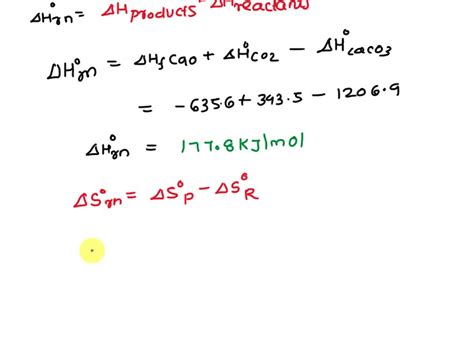 ΔH°rxn = ΔH products - ΔH reactants
ΔH°rxn = ΔHf CaO + ΔH°CO2 - ΔH°CaCO3
= -635.6 + 393.5 - 1206.9
ΔH°rxn = 177.8 KJ/mol
ΔS°rxn = ΔS°P - ΔS°R